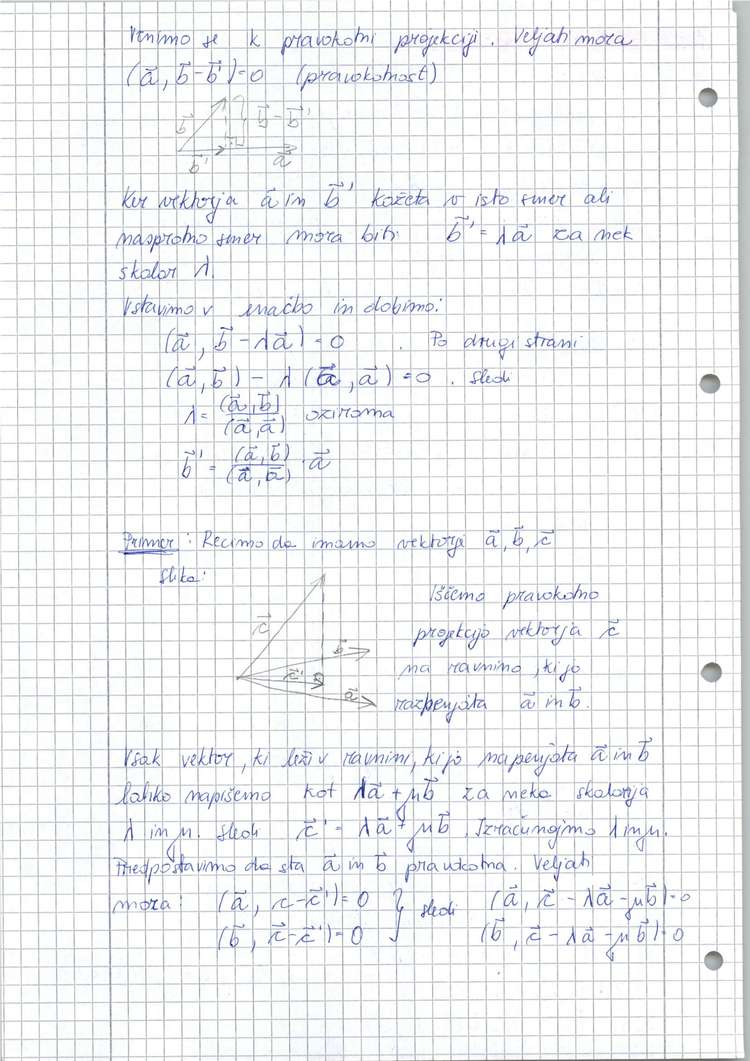 Vrnimo se k pravokotni projekciji. Veljati mora
(a⃗, b⃗-b⃗')=0 (pravokotnost)
b⃗ b⃗-b⃗'
b⃗' a⃗
Ker vektorja a⃗ in b⃗' kažeta v isto smer ali
nasprotno smer mora biti b⃗'=λa⃗ za nek
skalar λ.
Vstavimo v enačbo in dobimo:
(a⃗, b⃗-λa⃗)=0. Po drugi strani
(a⃗,b⃗)-λ(a⃗,a⃗)=0. Sledi
λ=(a⃗,b⃗)/(a⃗,a⃗) oziroma
b⃗'=(a⃗,b⃗)/(a⃗,a⃗)·a⃗
Primer: Recimo da imamo vektorje a⃗, b⃗, c⃗
Slika: Iščemo pravokotno
c⃗ projekcijo vektorja c⃗
b⃗ na ravnino, ki jo
c⃗' a⃗ razpenjata a⃗ in b⃗.
Vsak vektor, ki leži v ravnini, ki jo napenjata a⃗ in b⃗
lahko napišemo kot λa⃗+μb⃗ za neka skalarja
λ in μ. Sledi c⃗'=λa⃗+μb⃗. Izračunajmo λ in μ.
Predpostavimo da sta a⃗ in b⃗ pravokotna. Veljati
mora: (a⃗, c-c⃗')=0 } sledi (a⃗, c⃗-λa⃗-μb⃗)=0
(b⃗, c⃗-c⃗')=0 (b⃗, c⃗-λa⃗-μb⃗)=0